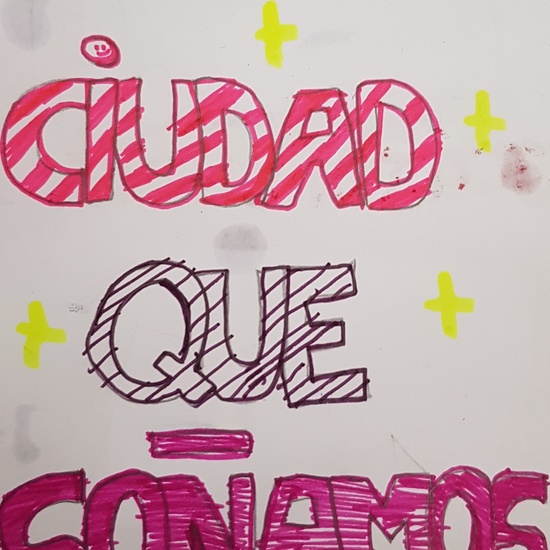 CIUDAD
QUE
SOÑAMOS